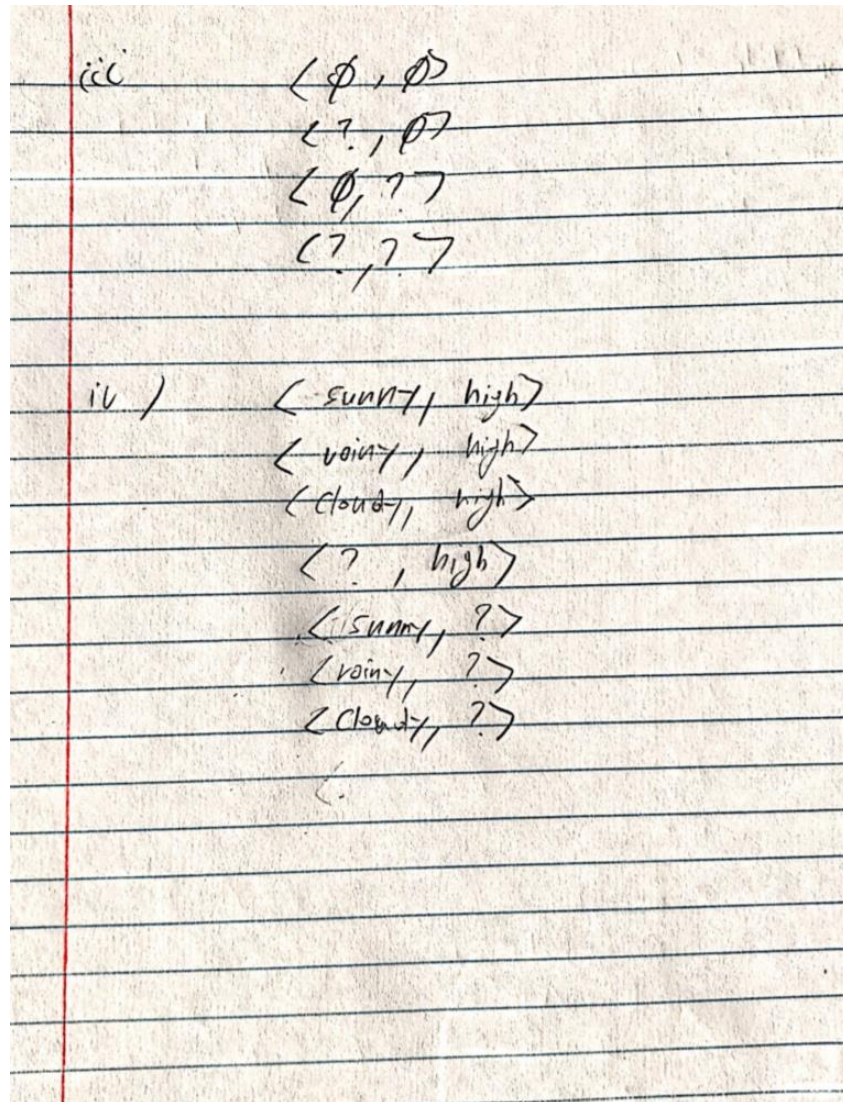 iii <φ, φ>
<?, φ>
<φ, ?>
<?, ?>
iv) <sunny, high>
<rainy, high>
<cloudy, high>
<?, high>
<sunny, ?>
<rainy, ?>
<cloudy, ?>
<